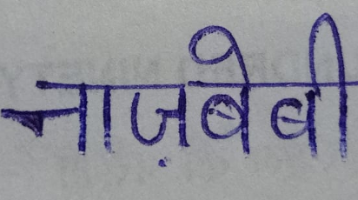 नाज़बेबी